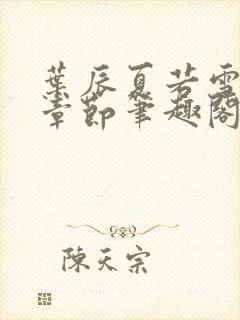 葉辰夏若雪
章節筆趣閣
陳天宗